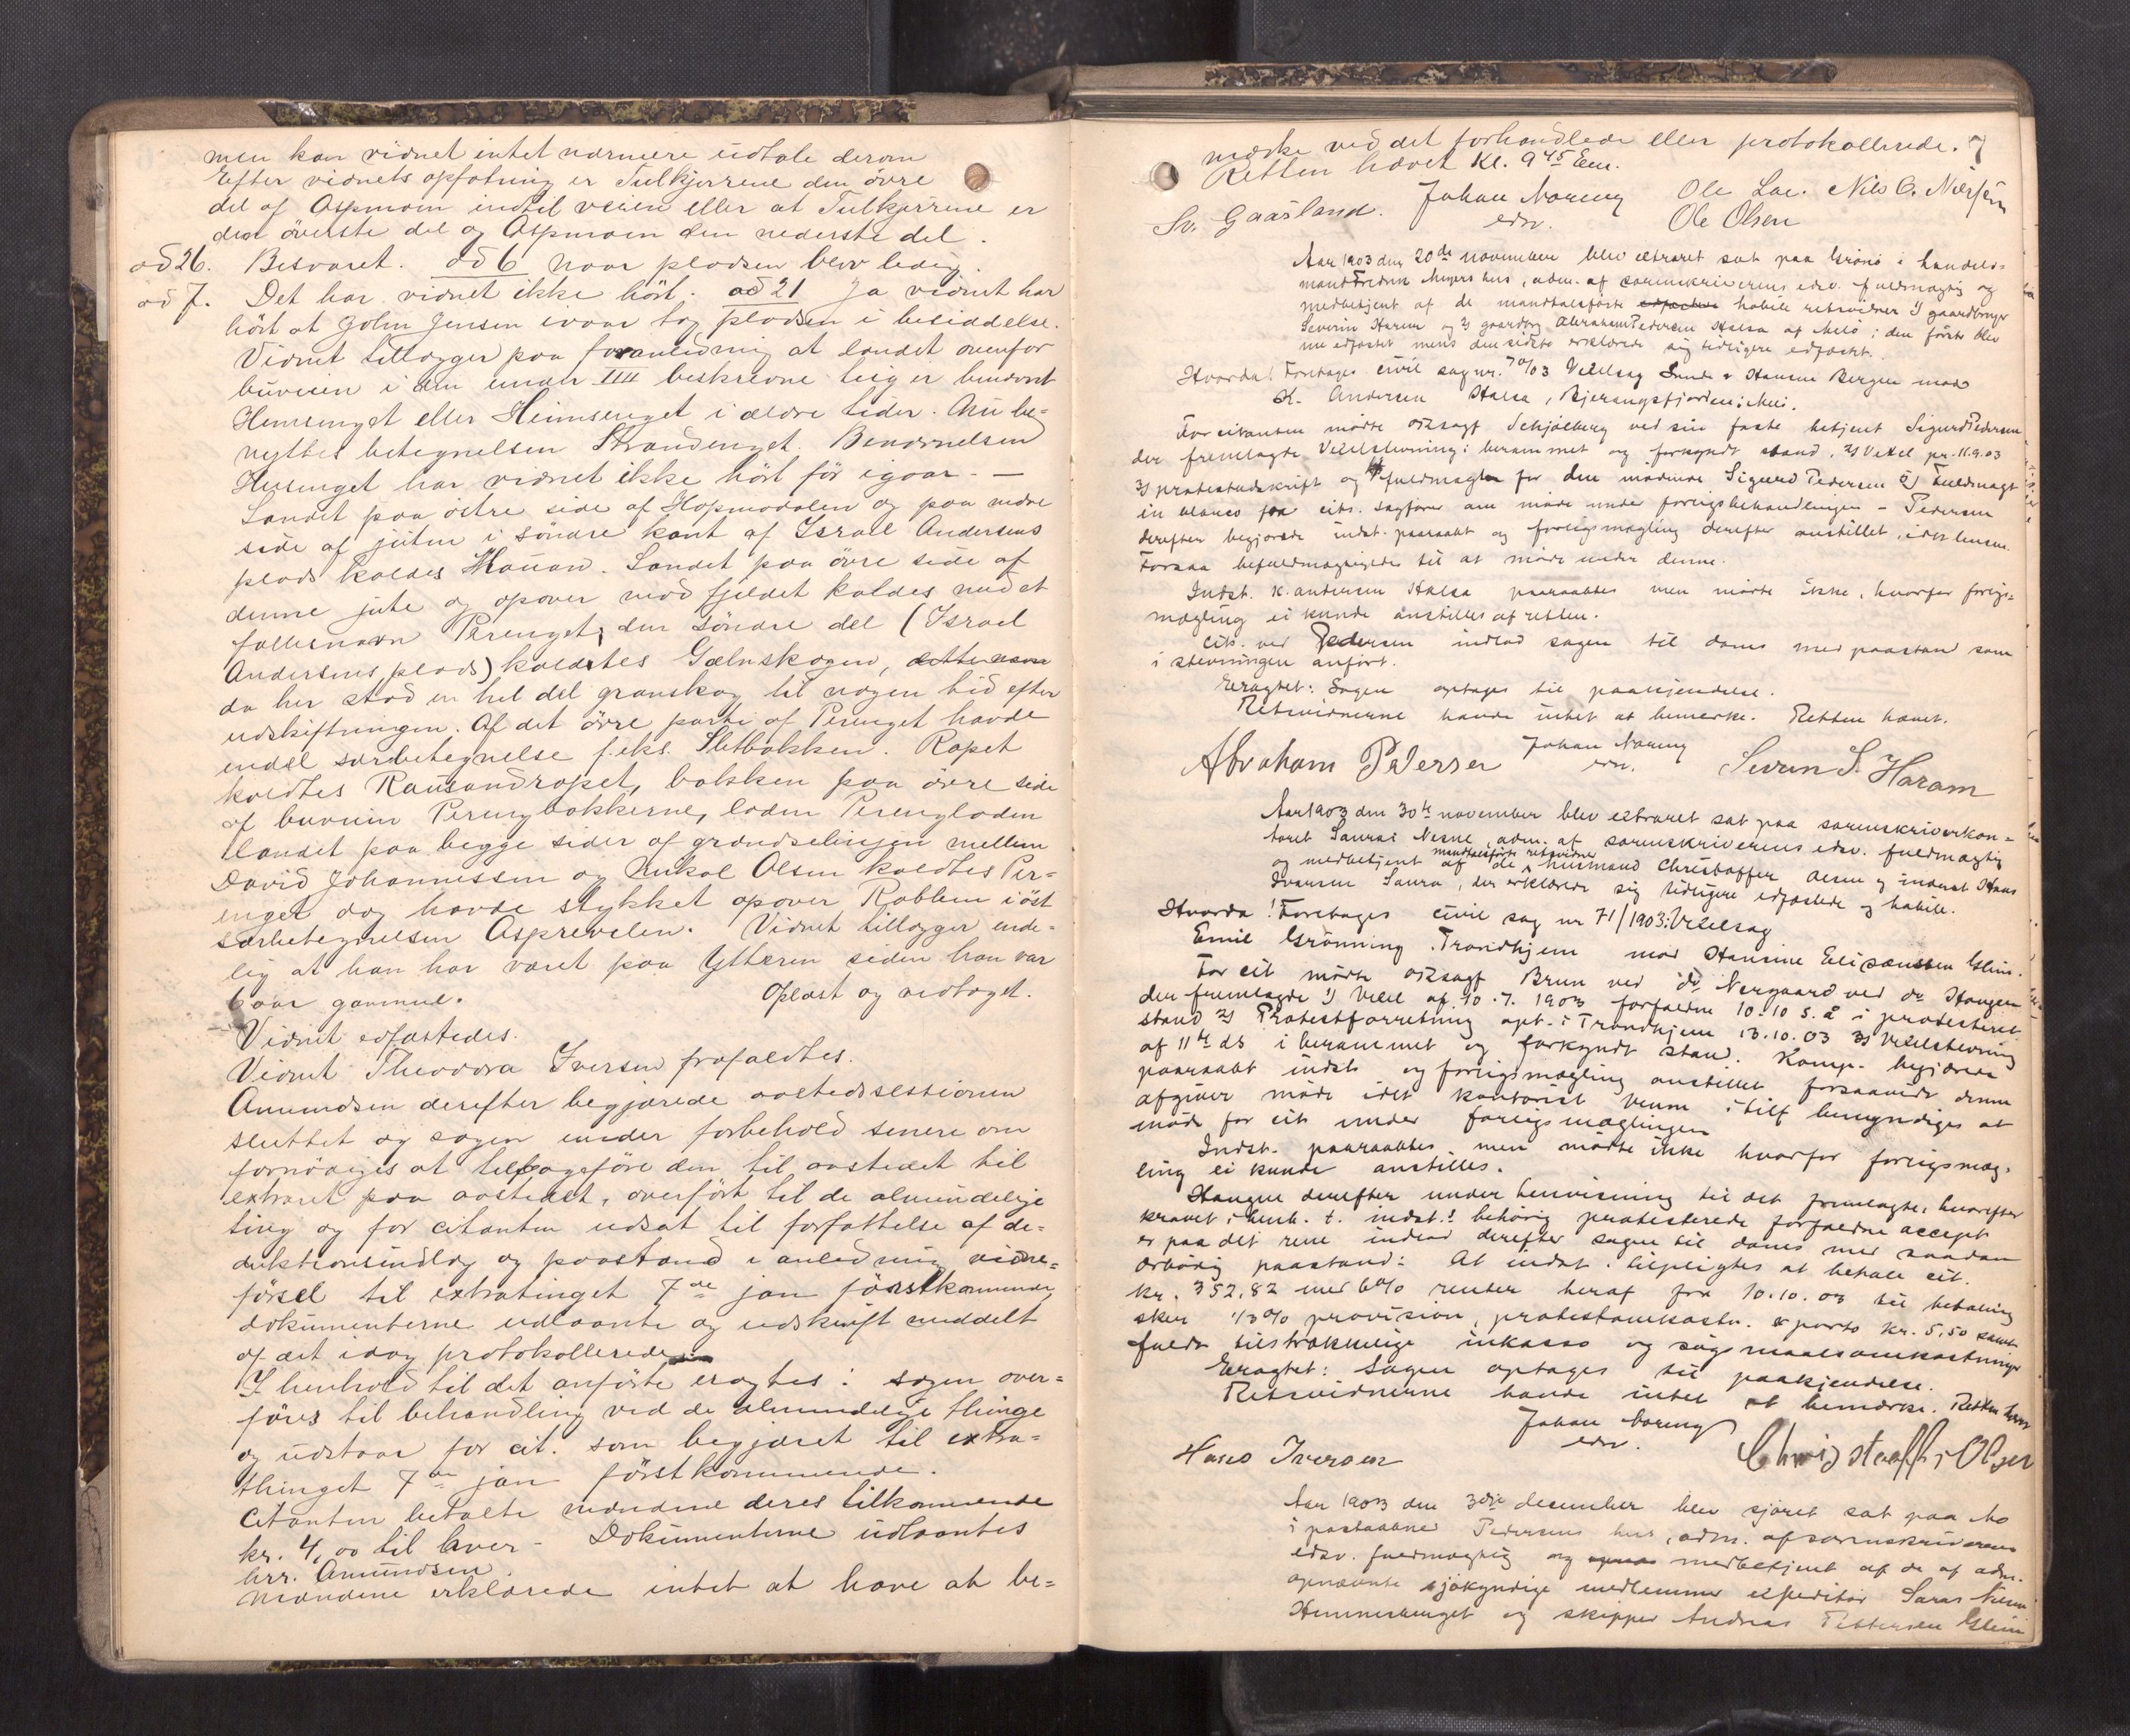 men kan vidnet intet nærmere udtale derom
Efter vidnets opfatning er Tulkjerrene den övre
del af Aspmoen indtil veien eller at Tulkjerrene er
den överste del og Aspmoen den nederste del.
ad 26. Besvaret. ad 6 naar pladsen blev ledig.
ad 7. Det har vidnet ikke hört. ad 21 Ja vidnet har
hört at John Jensen svaar tog pladsen i besiddelse.
Vidnet tillægger paa foranledning at landet ovenfor
buveien i den under IIII beskrevne teig er benævnt
Hemsenget eller Heimsenget i ældre tider. Nu be=
nyttes betegnelsen Strandenget. Benævnelsen
Husenget har vidnet ikke hört för igaar. —
Landet paa östre side af Hopmodalen og paa nedre
side af juten i söndre kant af Israel Andersens
plads kaldes Hauan. Landet paa övre side af
denne jute og opover mod fjeldet kaldes med et
fællesnavn Perenget, den söndre del (Israel
Andersens plads) kaldtes Gælnskogen,
da her stod en hel del granskog til nogen tid efter
udskiftningen. Af det övre parti af Perenget havde
endel særbetegnelse f.eks. Sletbakken. Rapet
kaldtes Rausandrapet, bakken paa övre side
af buveien Perengbakkerne, laden Perengladen
Landet paa begge sider af grændselinjen mellem
David Johannessen og Nukol Olsen kaldtes Per=
enget dog havde stykket opover Rabben i öst
særbetegnelsen Asprevelen. Vidnet tillægger ende=
lig at han har været paa Ytteren siden han var
6 aar gammel. Oplæst og vedtaget.
Vidnet edfæstedes.
Vidnet Theodora Iversen frafaldtes.
Amundsen derefter begjærede aastedssessionen
sluttet og sagen under forbehold senere om
fornödiges at tilbageföre den til aastedet til
extraret paa aastedet, overfört til de almindelige
ting og for citanten udsat til forfattelse af de=
duktionsindlæg og paastand i anledning vidne=
försel til extratinget 7de jan förstkommende
dokumenterne udlaante og udskrift meddelt
af det idag protokollerede
I henhold til det anförte eragtes: sagen over=
föres til behandling ved de almindelige thinge
og udstaar for cit. som begjæret til extra=
thinget 7de jan förstkommende.
Citanten betalte mændene deres tilkommende
kr. 4,00 til hver - Dokumenterne udlaantes
hrr. Amundsen.
Mændene erklærede intet at have at be=
mærke ved det forhandlede eller protokollerede. 7
Retten hævet Kl. 9 45 Em.
Sv. Gaasland. Johan Noreng Ole Lae. Nils C. Nielsen
edsv. Ole Olsen
Aar 1903 den 20de november blev extraret sat paa Grönö i handels=
mand Fredrik Meyers hus, adm. af sorenskriverens edsv. fuldmægtig og
medbetjent af de mandtalsförte habile retsvidner 1) gaardbruger
Severin Haram og 2) gaardbr Abraham Pedersen Halsa af Melö; den förste blev
nu edfæstet mens den sidste erklærede sig tidligere edfæstet.
Hvorda! Foretoges civil sag nr. 70/03 Vexelsag Sunde & Hansen Bergen mod
K. Andersen Halsa, Bjerangsfjorden i Melö.
For citanten mödte orsagf Schjölberg ved sin faste betjent Sigurd Pedersen
der fremlagde Vexelstevning i berammet og forkyndt stand, 2) Vexel pr. 11.9.03
3) protestudskrift og 4) fuldmagt for den mödende Sigurd Pedersen 5) Fuldmagt
in blanco fra cits. sagförer om möde under forligsbehandlingen - Pedersen
derefter begjærede indst. paaraabt og forligsmægling derefter anstillet, idet lensm.
Forsaa befuldmægtigedes til at möde under denne.
Indst. K. Andersen Halsa paaraabtes men mödte ikke, hvorfor forligs=
mægling ei kunde anstilles af retten.
Cit. ved Pedersen indlod sagen til doms med paastand som
i stevningen anfört.
Eragtet: Sagen optages til paakjendelse.
Retsvidnerne havde intet at bemerke. Retten hævet.
Abraham Pedersen Johan Noreng Severin S. Haram
edsv.
Aar 1903 den 30te november blev extraret sat paa sorenskriverkon=
toret Saura i Nesne, adm. af sorenskriverens edsv. fuldmægtig
og medbetjent af de mandtalsförte retsvidner husmand Christoffer Olsen og inderst Hans
Iversen Saura, der erklærede sig tidligere edfæstede og habile.
Hvorda! Foretoges civil sag nr 71/1903: Vexelsag
Emil Grönning Trondhjem mod Hansine Elisæussen Glein.
For cit mödte orsagf Brun ved do Nergaard ved do Haugen
der fremlagde 1) Vexel af 10.7.1903 forfalden 10.10 s. å i protesteret
stand 2) Protestforretning opt. i Trondhjem 13.10.03 3) Vexelstevning
af 11te ds i berammet og forkyndt stand. Komp. begjærede
paaraabt indst. og forligsmægling anstillet forsaavidt denne
afgiver möde idet kontorist i tilf bemyndiges at
möde for cit. under forligsmæglingen
Indst. paaraabtes men mödte ikke hvorfor forligsmæg=
ling ei kunde anstilles.
Haugen derefter under henvisning til det fremlagte, hvorefter
kravet i henh. t. indst.s behörig protesterede forfaldne accept
er paa det rene indlod derefter sagen til doms med saadan
ærbödig paastand: At indst. tilpligtes at betale cit.
kr. 352,82 med 6% renter heraf fra 10.10.03 til betaling
sker 1/3% provision, protestomkostn. & porto kr. 5,50 samt
fulde tilstrækkelige inkasso og sögsmaalsomkostninger
Eragtet: Sagen optages til paakjendelse.
Retsvidnerne havde intet at bemærke. Retten hævet
Johan Noreng
Hans Iversen edsv. Christoffer Olsen
Aar 1903 den 3die desember blev sjöret sat paa Mo
i postaabner Pedersens hus, adm. af sorenskriverens
edsv. fuldmægtig og medbetjent af de af adm.
opnævnte sjökyndige medlemmer expeditör Lars Nilsen
Hemnesberget og skipper Andreas Pettersen Glein